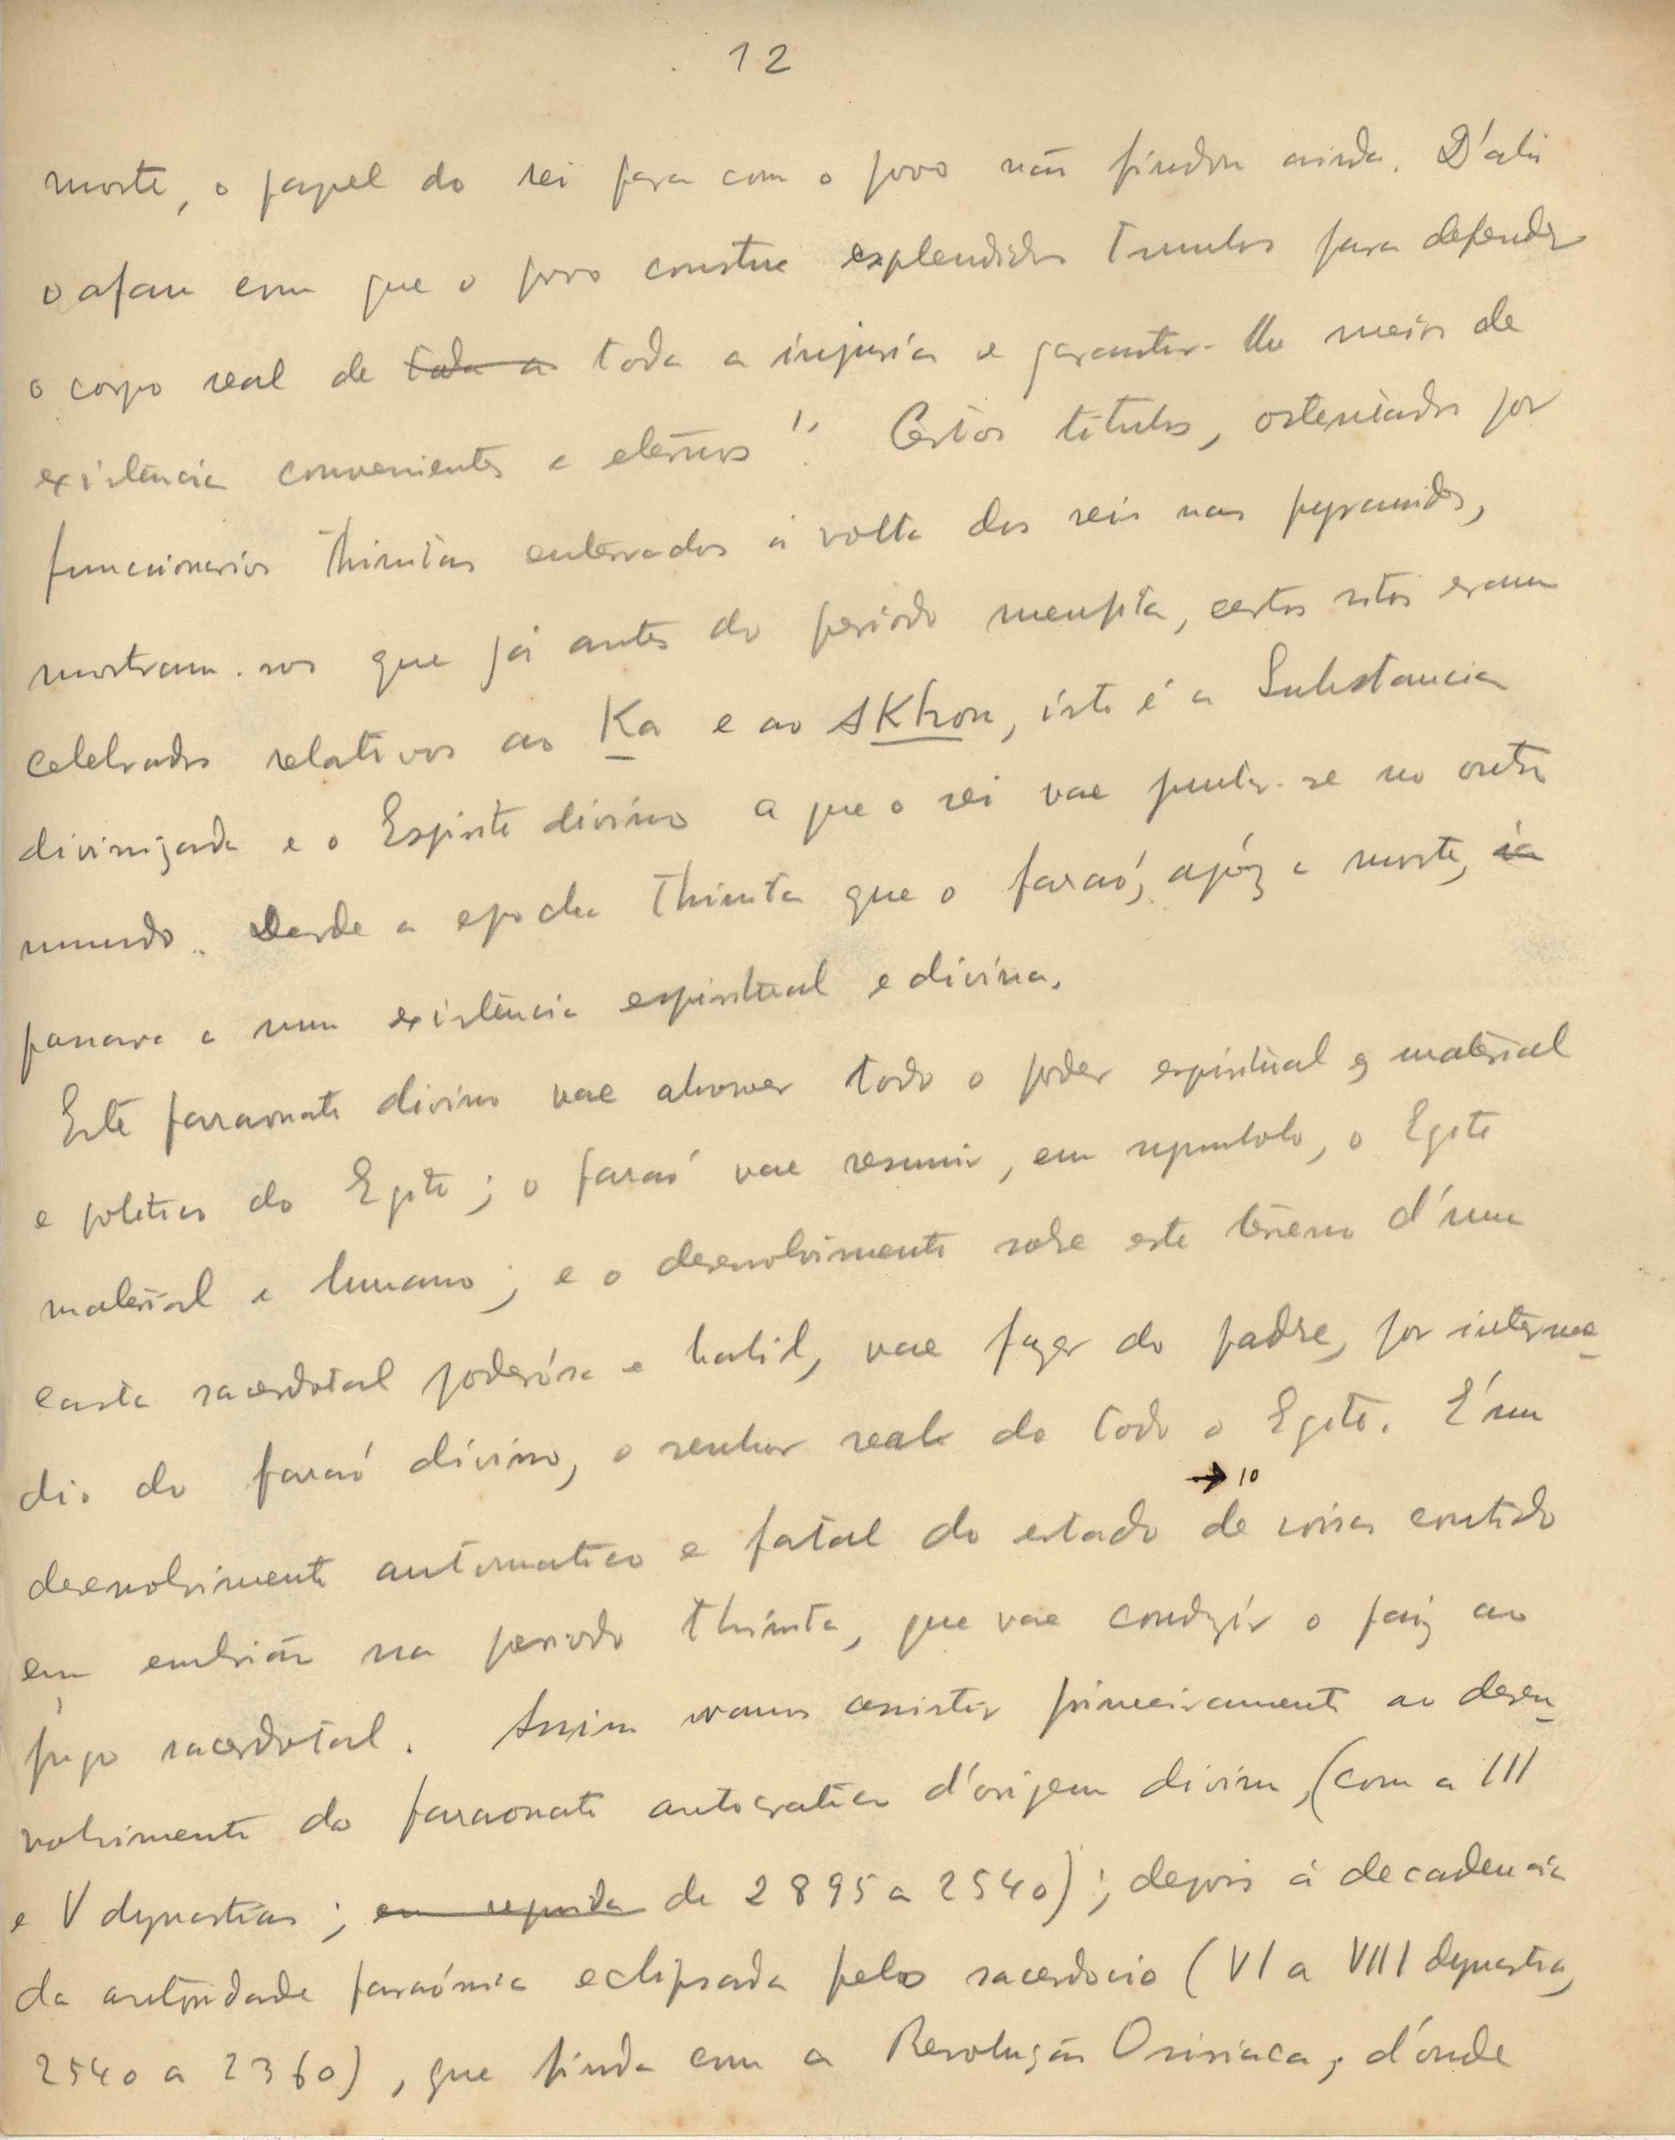 12
morte, o papel do rei para com o povo não findou ainda. D'ahi
o afan com que o povo construe explendidos tumulos para defender
o corpo real de toda a toda a injuria e garantir-lhe meios de
existencia convenientes e eternos". Certos titulos, ostentados por
funcionarios thinitas enterrados á volta dos reis nas pyramides,
mostram-nos que já antes do periodo menfita, certos ritos eram
celebrados relativos ao Ka e ao AKhou, isto é a Substancia
divinizada e o Espirito divino a que o rei vae juntar-se no outro
mundo. Desde a epocha thinita que o faraó, apóz a morte, ia
passava a uma existencia espiritual e divina.
Este faraonato divino vae absorver todo o poder espiritual e material
e politico do Egito; o faraó vae resumir, em symbolo, o Egito
material e humano; e o desenvolvimento sobre este terreno d'uma
casta sacerdotal poderósa e habil, vae fazer do padre, por interme-
dio do faraó divino, o senhor real de todo o Egito. É um
→ 10
desenvolvimento automatico e fatal do estado de coisas contido
em embrião no periodo thinita, que vae conduzir o paiz ao
jugo sacerdotal. Assim vamos assistir primeiramente ao desen-
volvimento do faraonato autocratico d'origem divina, (com a III
e V dynastias; em seguida de 2895 a 2540); depois á decadencia
da autoridade faraónica eclipsada pelo sacerdocio (VI a VIII dynastia,
2540 a 2360), que finda com a Revolução Osiriaca, d'onde